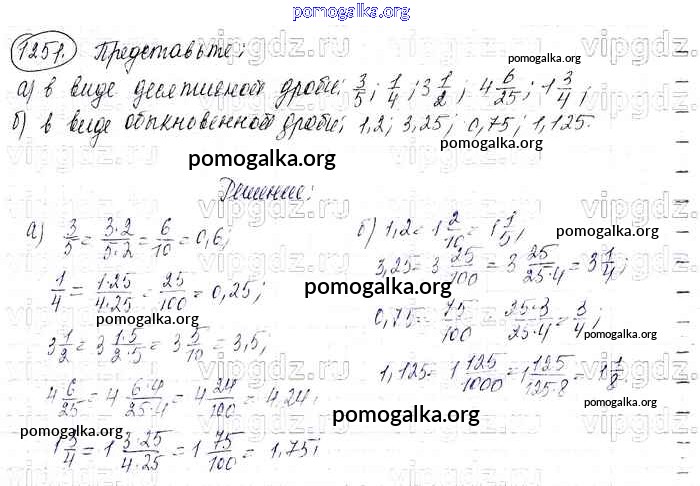 pomogalka.org
1251. Представьте:
а) в виде десятичной дроби: 3/5; 1/4; 3 1/2; 4 6/25; 1 3/4;
б) в виде обыкновенной дроби; 1,2; 3,25; 0,75; 1,125.
pomogalka.org
Решение:
а) 3/5 = 3·2/5·2 = 6/10 = 0,6;
1/4 = 1·25/4·25 = 25/100 = 0,25;
3 1/2 = 3 1·5/2·5 = 3 5/10 = 3,5;
4 6/25 = 4 6·4/25·4 = 4 24/100 = 4,24;
1 3/4 = 1 3·25/4·25 = 1 75/100 = 1,75;
б) 1,2 = 1 2/10 = 1 1/5;
3,25 = 3 25/100 = 3 25/25·4 = 3 1/4;
0,75 = 75/100 = 25·3/25·4 = 3/4;
1,125 = 1 125/1000 = 1 125/125·8 = 1 1/8.
vipgdz.ru
pomogalka.org
pomogalka.org
pomogalka.org
pomogalka.org
pomogalka.org
pomogalka.org
pomogalka.org
pomogalka.org